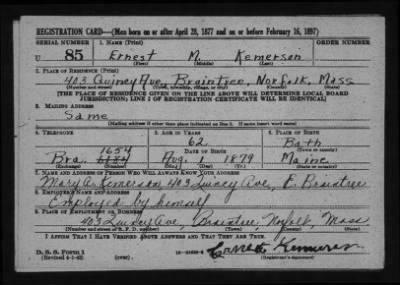 REGISTRATION CARD—(Men born on or after April 28, 1877 and on or before February 16, 1897)
SERIAL NUMBER 1. NAME (Print)
U 85 Ernest M. Kemerson
(First) (Middle) (Last)
2. PLACE OF RESIDENCE (Print)
403 Quincy Ave, Braintree, Norfolk, Mass
(Number and street) (Town, township, village, or city) (County) (State)
[THE PLACE OF RESIDENCE GIVEN ON THE LINE ABOVE WILL DETERMINE LOCAL BOARD
JURISDICTION; LINE 2 OF REGISTRATION CERTIFICATE WILL BE IDENTICAL]
3. MAILING ADDRESS
Same
[Mailing address if other than place indicated on line 2. If same insert word same]
4. TELEPHONE 5. AGE IN YEARS 6. PLACE OF BIRTH
62 Bath
1654 DATE OF BIRTH (Town or county)
Bra. Aug. 1 1879 Maine
(Exchange) (Number) (Mo.) (Day) (Yr.) (State or country)
7. NAME AND ADDRESS OF PERSON WHO WILL ALWAYS KNOW YOUR ADDRESS
Mary A. Kemerson 403 Quincy Ave, E. Braintree
8. EMPLOYER'S NAME AND ADDRESS
Employed by himself
9. PLACE OF EMPLOYMENT OR BUSINESS
403 Quincy Ave, Braintree, Norfolk, Mass
(Number and street or R. F. D. number) (Town) (County) (State)
I AFFIRM THAT I HAVE VERIFIED ABOVE ANSWERS AND THAT THEY ARE TRUE.
D. S. S. Form 1
(Revised 4-1-42) (over) (Registrant's signature)